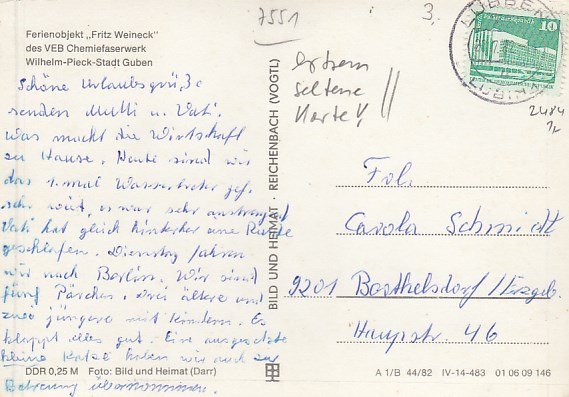 7551
3.
Ferienobjekt „Fritz Weineck"
des VEB Chemiefaserwerk
Wilhelm-Pieck-Stadt Guben
Schöne Urlaubsgrüße
senden Mutti u. Vati.
Was macht die Wirtschaft
zu Hause. Heute sind wir
das 1. mal Wasser gef.
sehr weit, es war sehr anstrengend
Vati hat gleich hinterher eine Runde
geschlafen. Dienstag fahren
wir nach Berlin. Wir sind
fünf Pärchen. Drei ältere und
zwei jüngere mit Kindern. Es
klappt alles gut. Eine ausgesetzte
kleine Katze haben wir auch zur
Betreuung übernommen.
DDR 0,25 M Foto: Bild und Heimat (Darr)
BILD UND HEIMAT · REICHENBACH (VOGTL)
extrem
seltene
Karte!
LÜBBEN
10
2484
Frl.
Carola Schmidt
9201 Berthelsdorf/Erzgeb.
Hauptstr. 46
A 1/B 44/82 IV-14-483 01 06 09 146